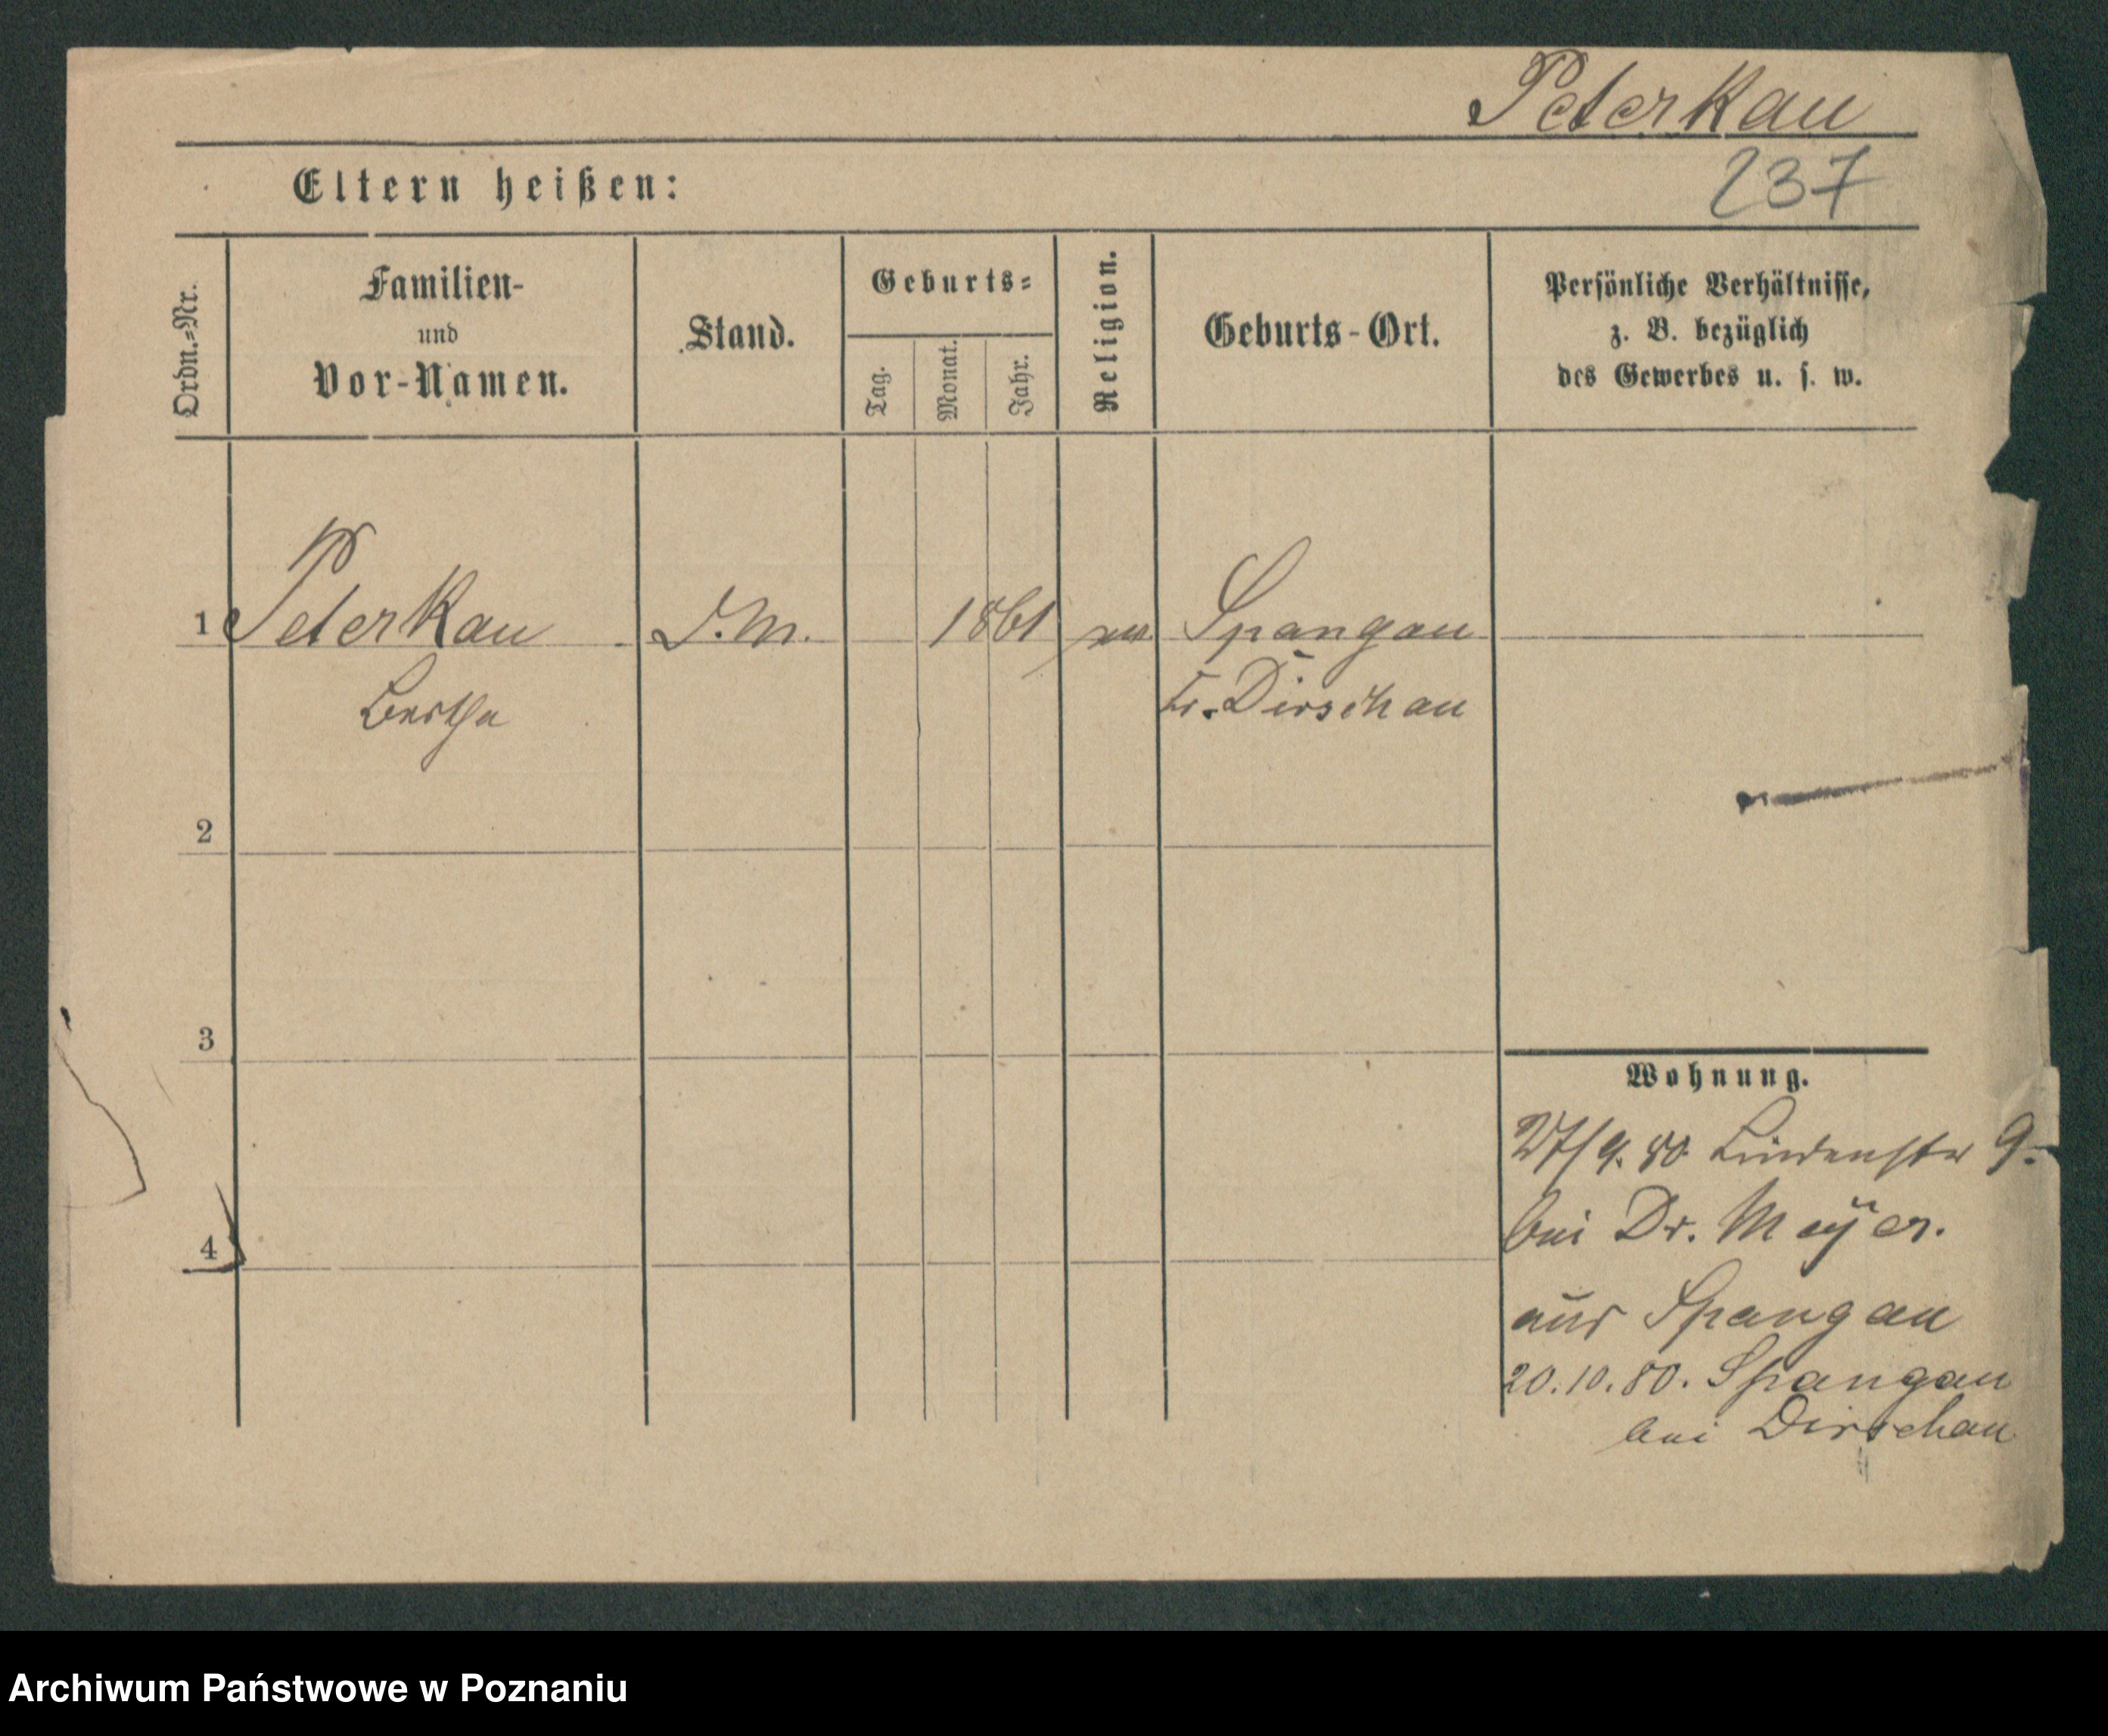 Peterkau
237
Eltern heißen:
Ordn.-Nr.
Familien-
und
Vor-Namen.
Stand.
Geburts-
Tag.
Monat.
Jahr.
Religion.
Geburts-Ort.
Persönliche Verhältnisse,
z. B. bezüglich
des Gewerbes u. s. w.
1 Peterkau D.M. 1861 Spangau
Bertha Kr. Dirschau
2
3
4
Wohnung.
27/9. 80 Lindenstr 9.
bei Dr. Meÿer.
aus Spangau
20.10.80. Spangau
bei Dirschau
Archiwum Państwowe w Poznaniu